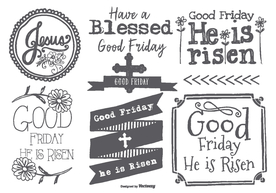 Jesus
Have a
Blessed
Good Friday
GOOD FRIDAY
Good Friday
He is
risen
GOOD
FRIDAY
HE IS RISEN
Good Friday
he is Risen
Good
Friday
He is Risen
Designed by Vecteezy